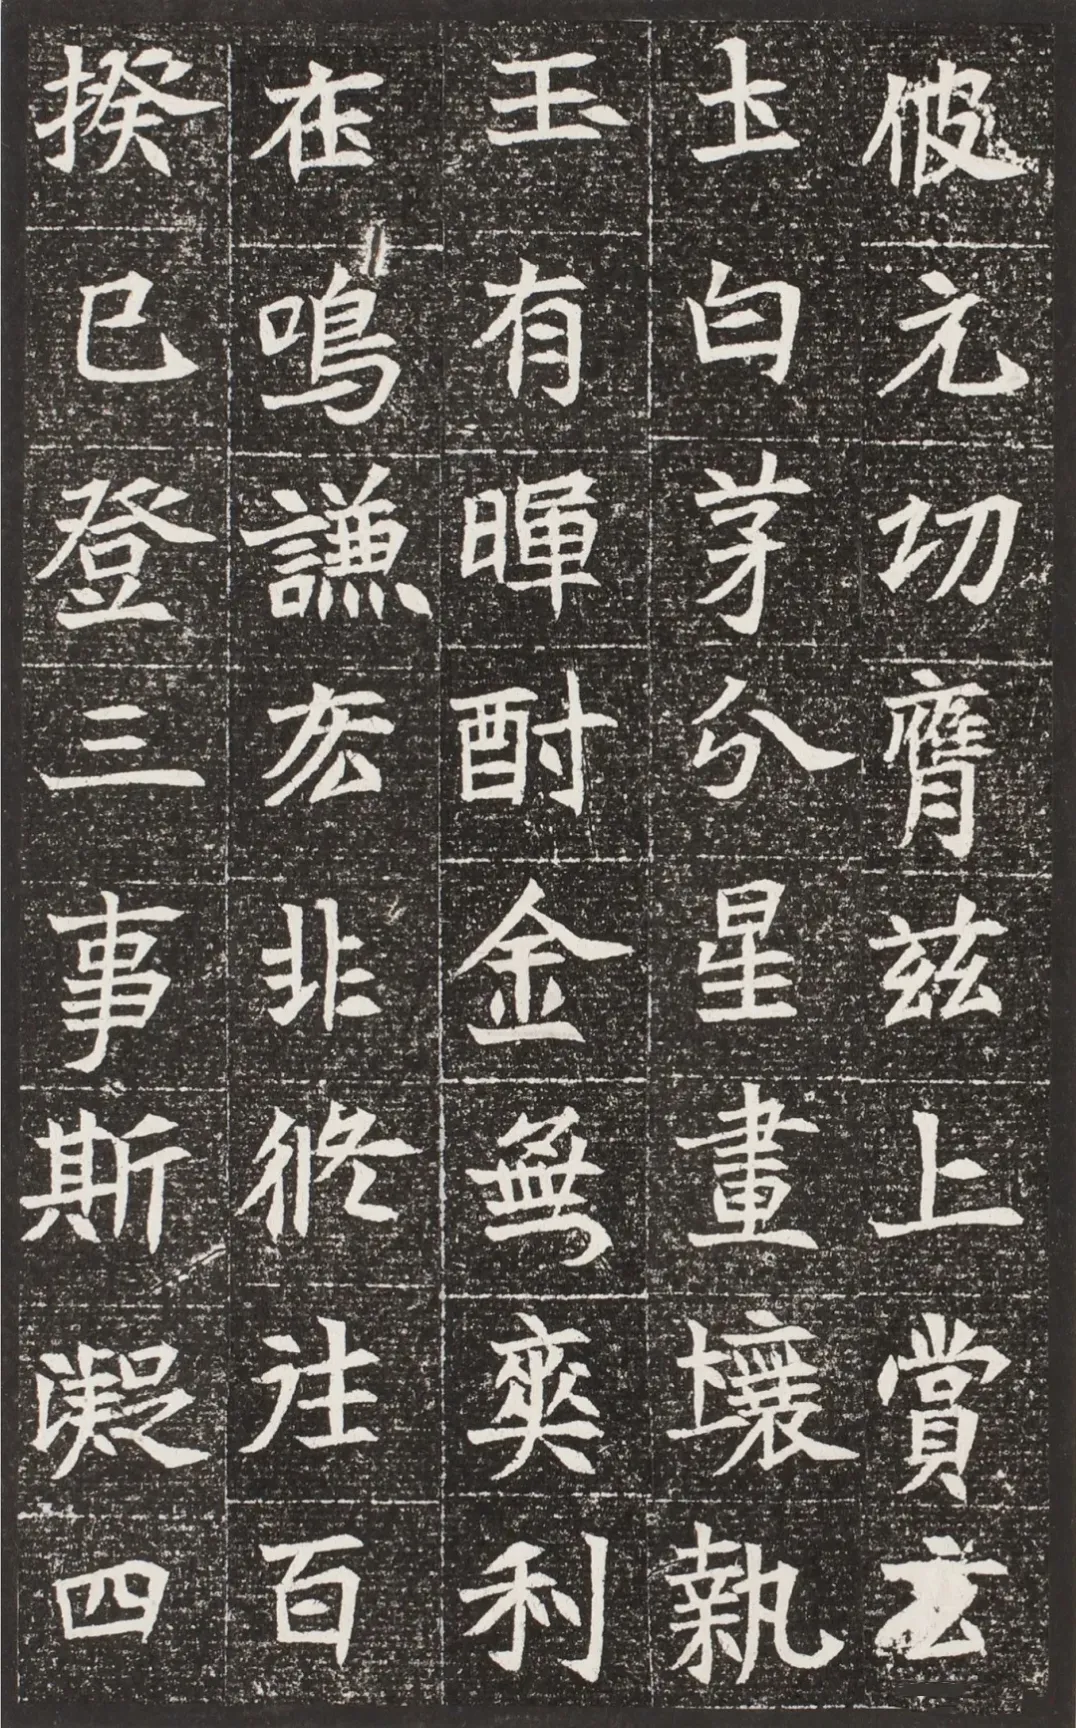 彼元功膺茲上賞玄
土白茅分星畫壤執
玉有暉酎金無爽利
在鳴謙宏非修往百
揆已登三事斯凝四